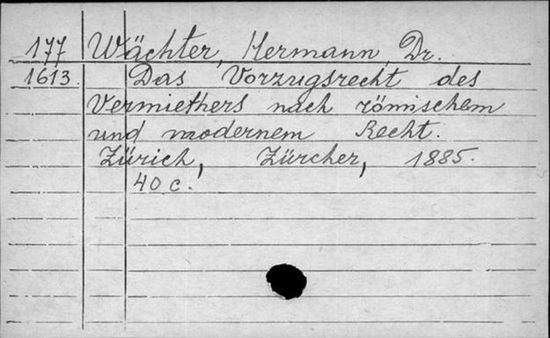 177 Wächter, Hermann, Dr.
1613. Das Vorzugsrecht des
Vermiethers nach römischem
und modernem Recht.
Zürich, Zürcher, 1885.
40 c.